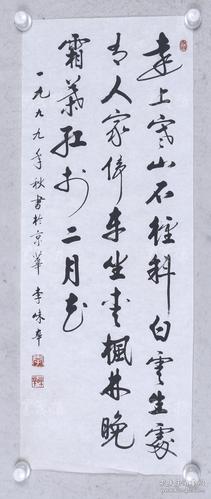 远上寒山石径斜白云生處
有人家停车坐爱楓林晚
霜葉红于二月花
一九九九年秋書於京華 李味辛